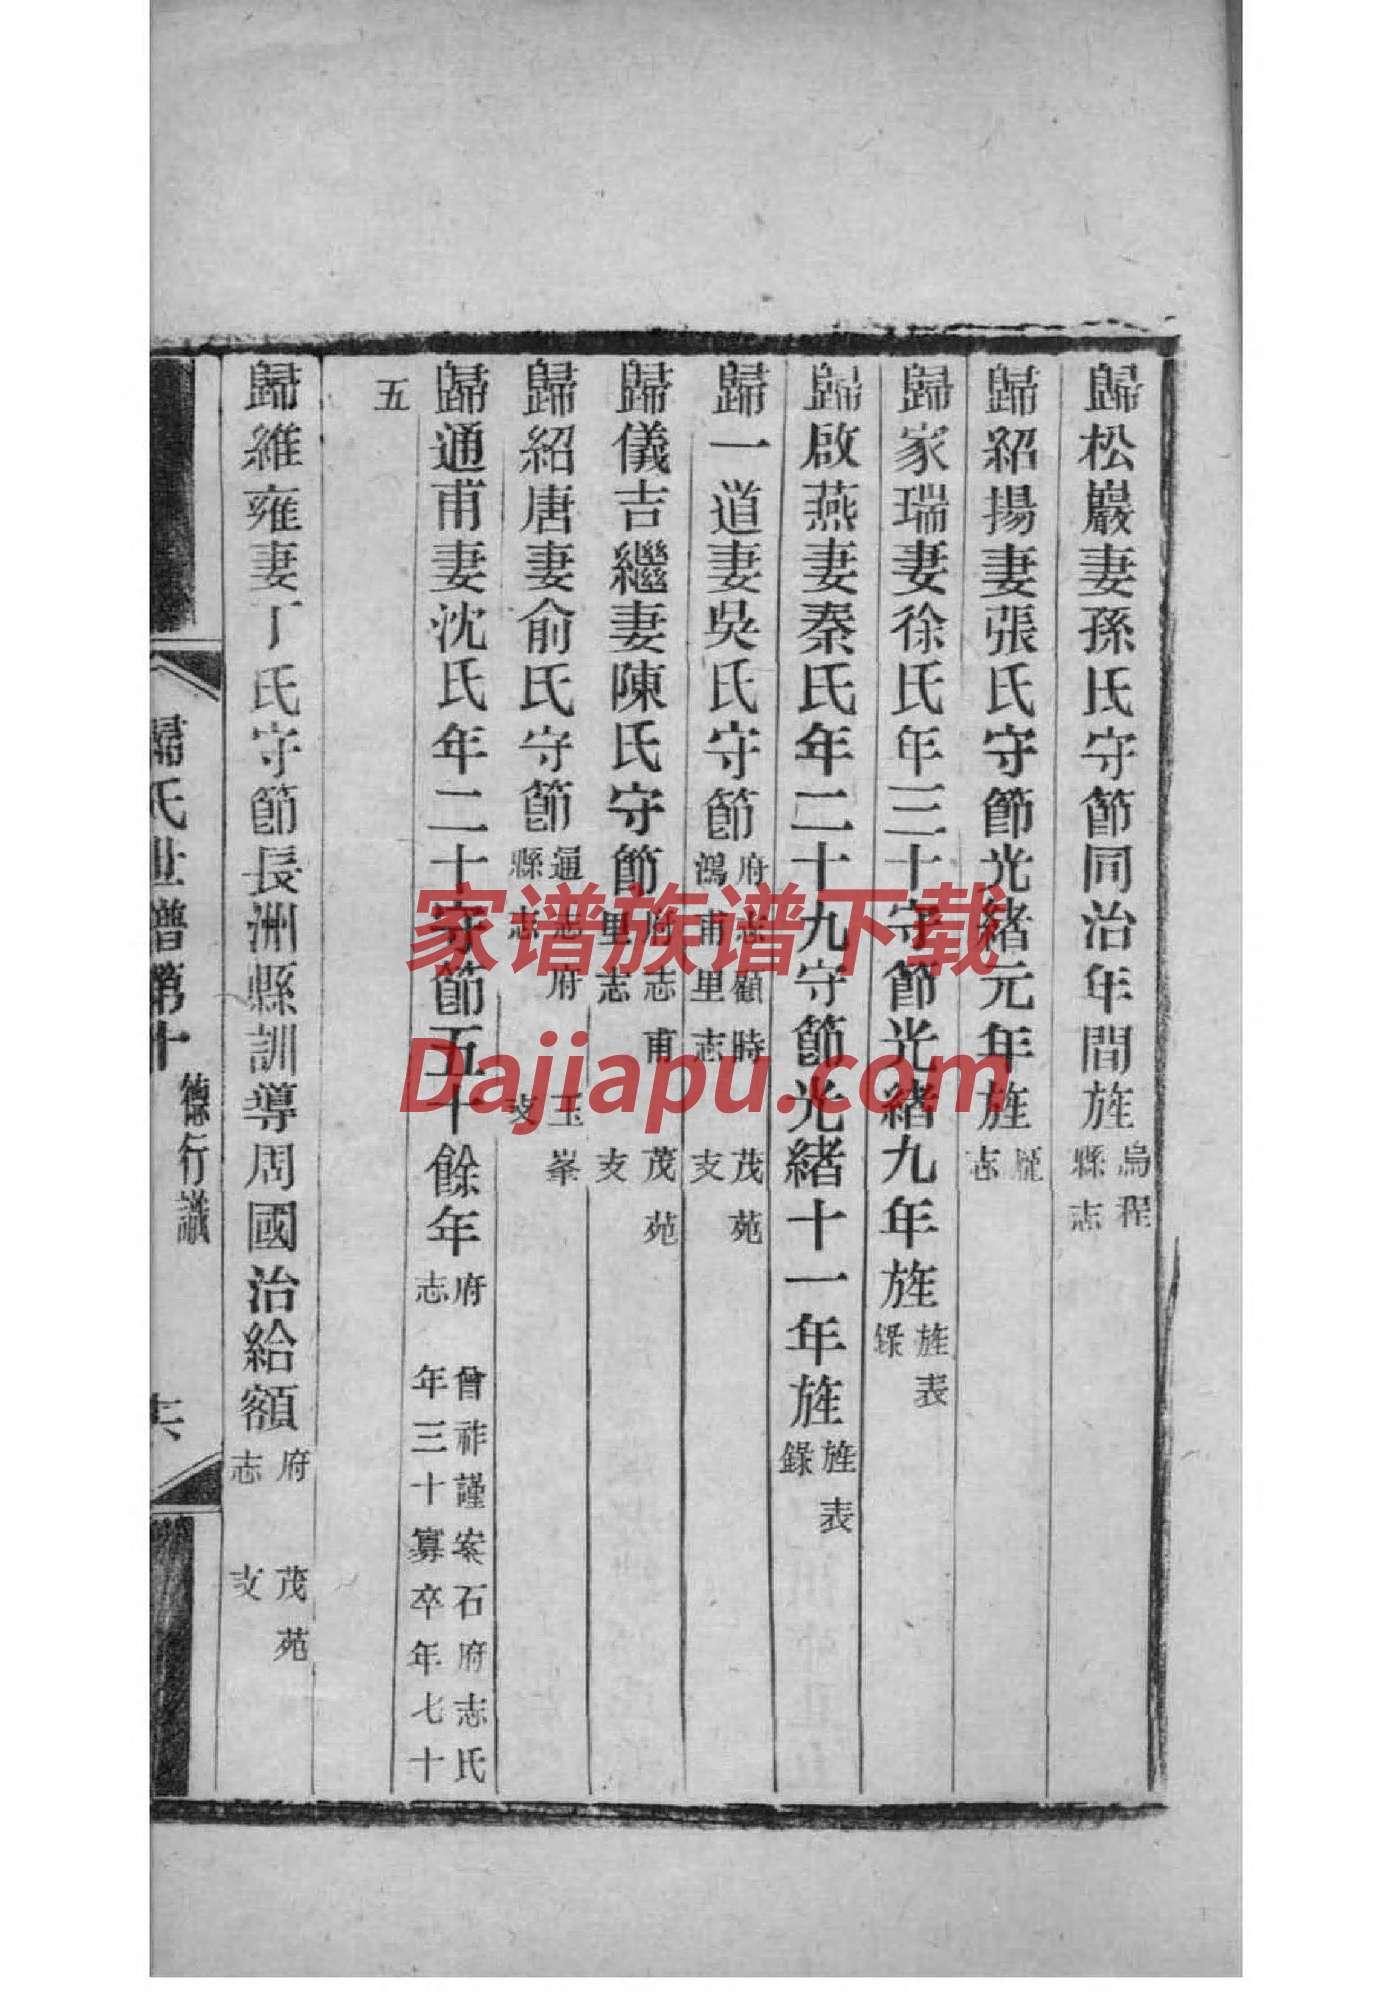 歸松巖妻孫氏守節同治年間旌烏程縣志
歸紹揚妻張氏守節光緒元年旌志
歸家瑞妻徐氏年三十守節光緒九年旌旌表錄
歸啟燕妻秦氏年二十九守節光緒十一年旌旌表錄
歸一道妻吳氏守節府志顧時鴻甫里志 茂苑支
歸儀吉繼妻陳氏守節府志甫里志 茂苑支
歸紹唐妻俞氏守節通志府縣志 玉峯支
歸通甫妻沈氏年二十守節五十餘年府志 曾祚謹案石府志氏年三十寡卒年七十
五
歸維雍妻丁氏守節長洲縣訓導周國治給額府志 茂苑支
歸氏世譜第十 德行識 十六
家谱族谱下载
Dajiapu.com